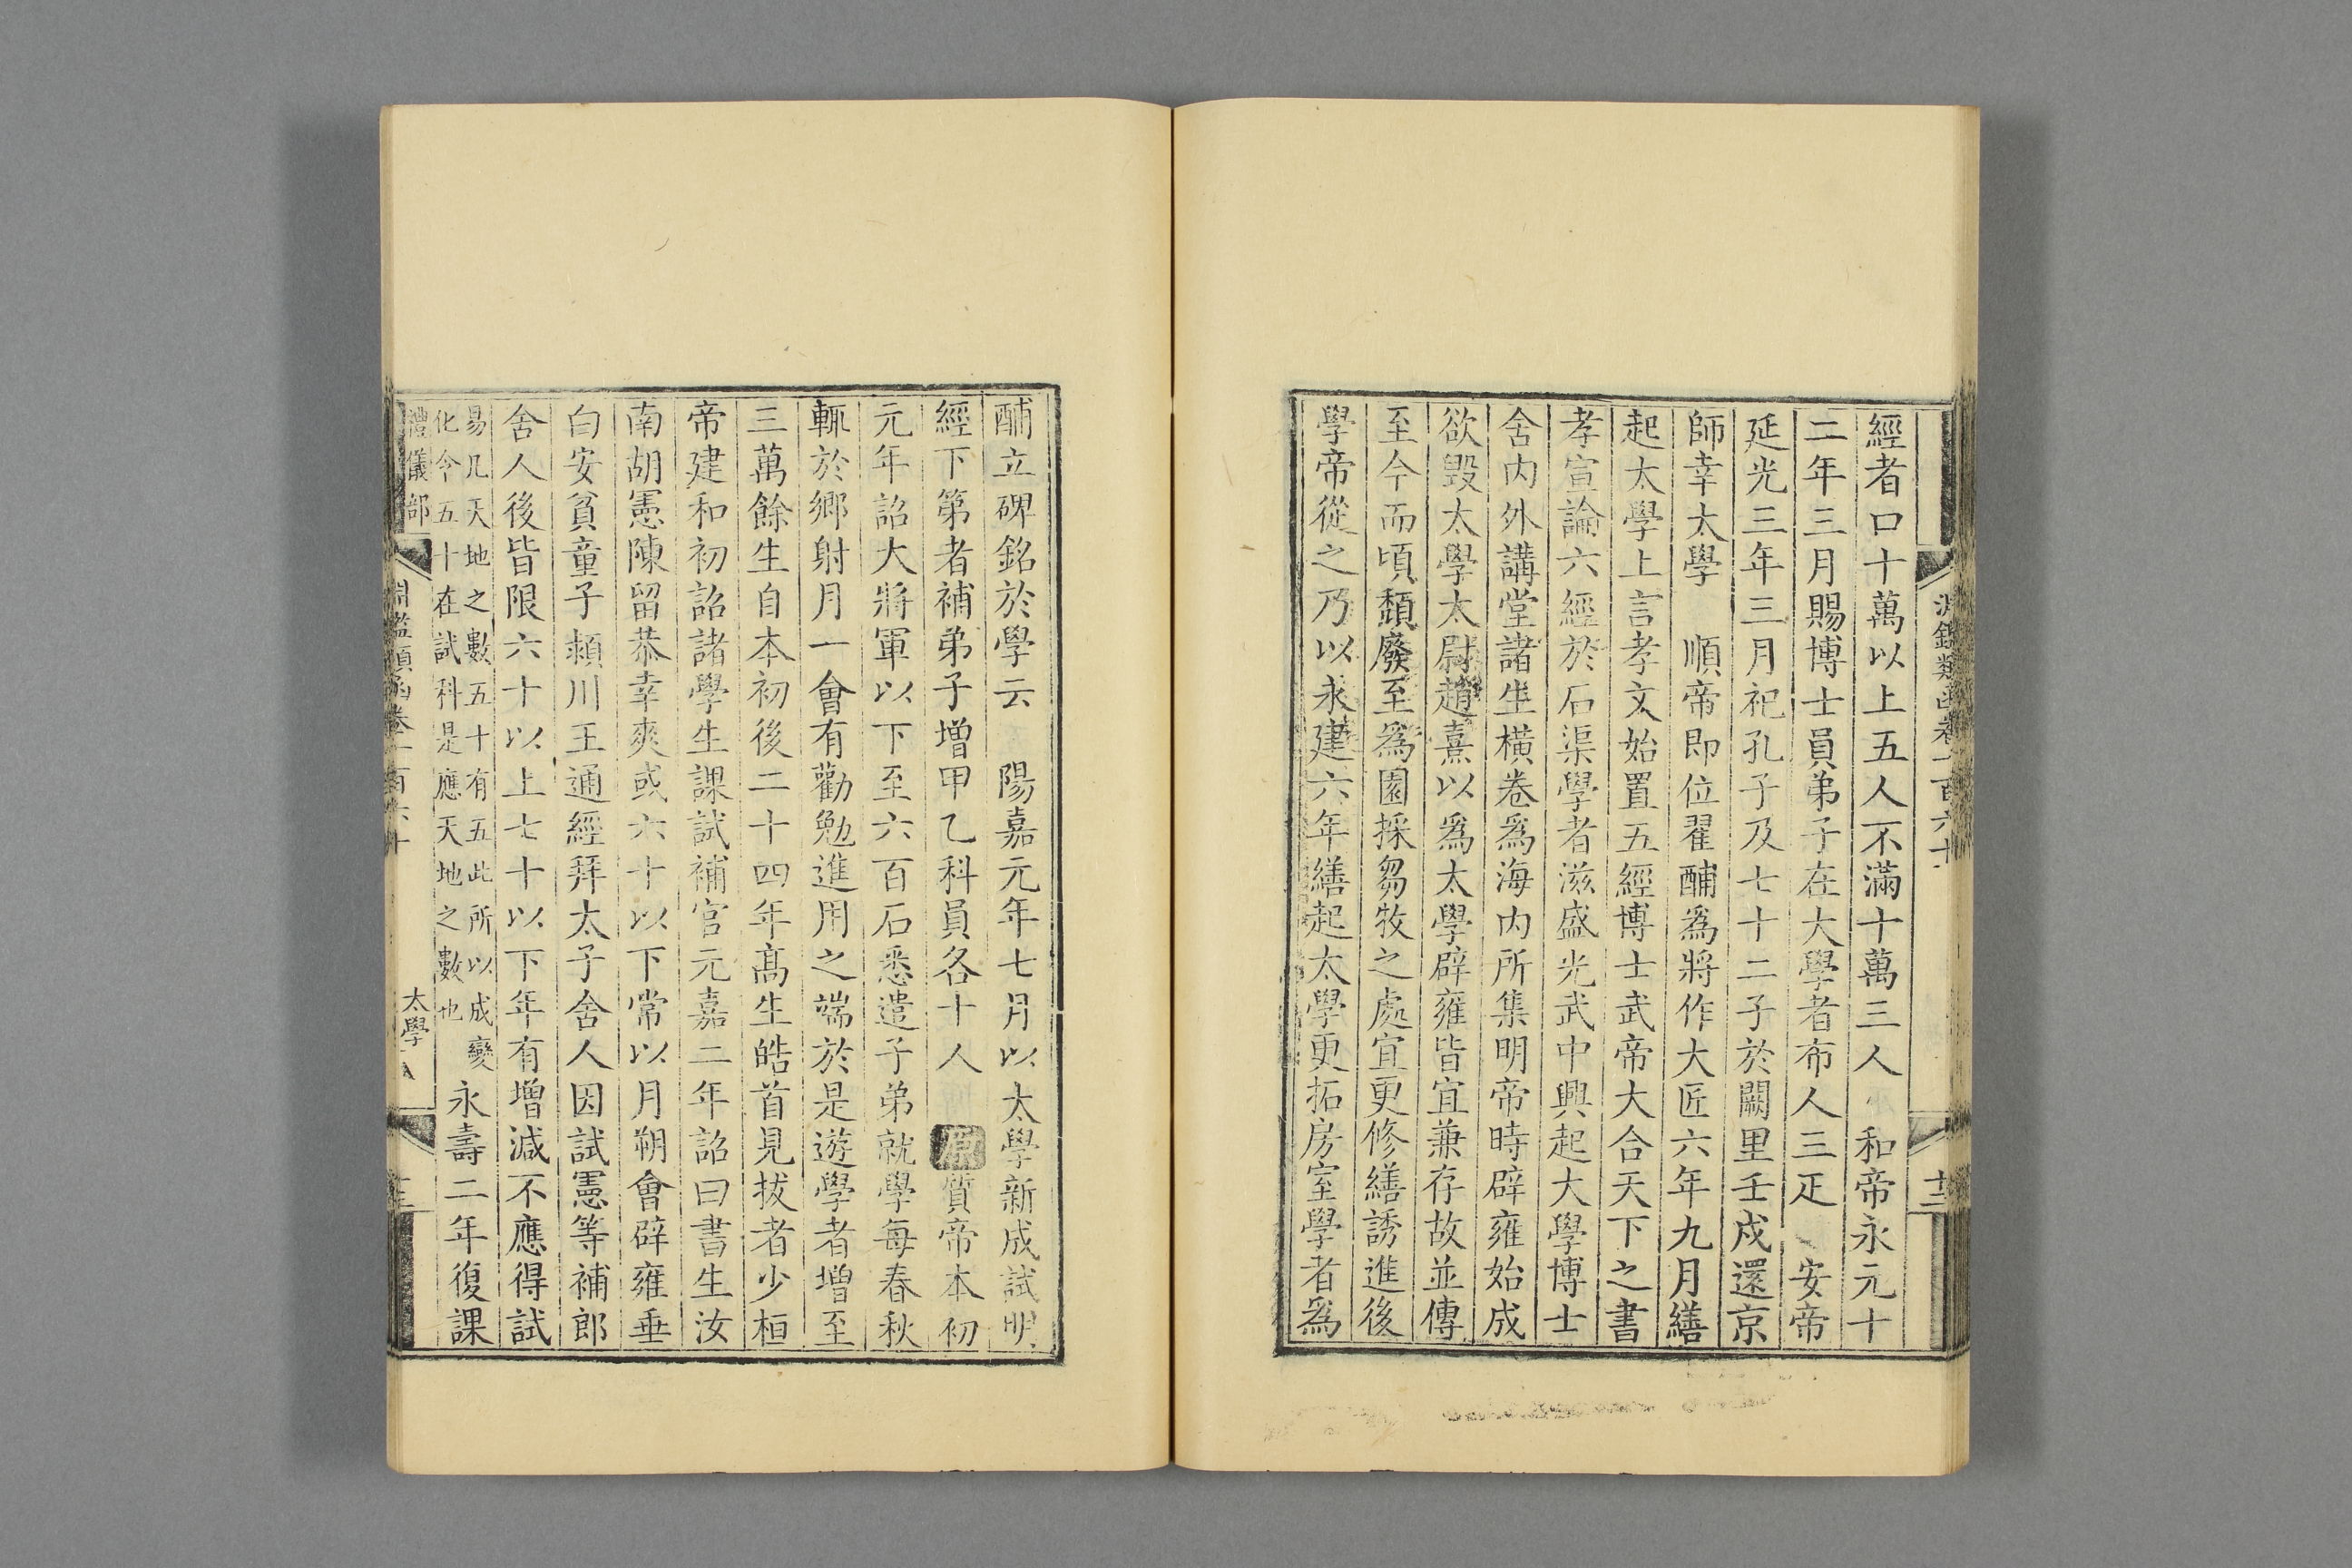 經者口十萬以上五人不滿十萬三人　和帝永元十
二年三月賜博士員弟子在大學者布人三疋　安帝
延光三年三月祀孔子及七十二子於闕里壬戍還京
師幸太學　順帝即位翟酺爲將作大匠六年九月繕
起太學上言孝文始置五經博士武帝大合天下之書
孝宣論六經於石渠學者滋盛光武中興起大學博士
舍內外講堂諸生橫卷爲海內所集明帝時辟雍始成
欲毀太學太尉趙熹以爲太學辟雍皆宜兼存故並傳
至今而頃頹廢至爲園採芻牧之處宜更修繕誘進後
學帝從之乃以永建六年繕起太學更拓房室學者爲
酺立碑銘於學云　陽嘉元年七月以太學新成試明
經下第者補弟子增甲乙科員各十人　原質帝本初
元年詔大將軍以下至六百石悉遣子弟就學每春秋
輒於鄉射月一會有勸勉進用之端於是遊學者增至
三萬餘生自本初後二十四年高生皓首見拔者少桓
帝建和初詔諸學生課試補官元嘉二年詔曰書生汝
南胡憲陳留恭幸爽或六十以下常以月朔會辟雍垂
白安貧童子頻川王通經拜太子舍人因試憲等補郎
舍人後皆限六十以上七十以下年有增減不應得試
易凡天地之數五十有五此所以成變
化今五十在試科是應天地之數也
永壽二年復課
禮儀部
淵鑑類函卷一百六十
太學八